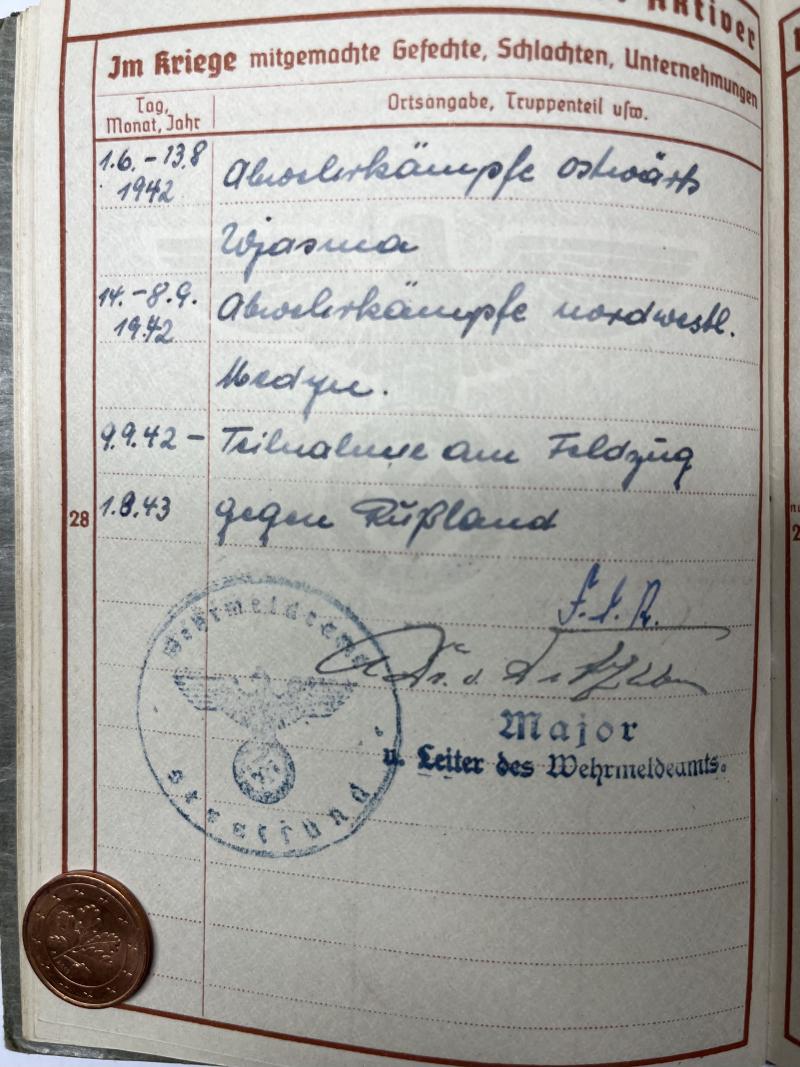 Aktiver
Im Kriege mitgemachte Gefechte, Schlachten, Unternehmungen
Tag, Monat, Jahr
Ortsangabe, Truppenteil usw.
1.6. - 13.8 1942 Abwehrkämpfe ostwärts
Wjasma
14. - 8.9. 1942 Abwehrkämpfe nordwestl.
Medyn.
9.9.42 - Teilnahme am Feldzug
28
1.8.43 gegen Rußland
F.d.R.
Wehrmeldeamt
Stralsund
Major
u. Leiter des Wehrmeldeamts.